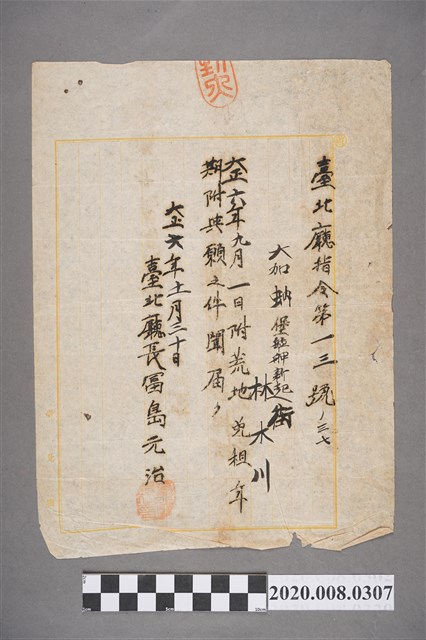 臺北廳指令第一三號ノ三七
大加蚋堡艋舺新起街
林木川
大正六年九月一日附荒地免租年
期附與願之件聞届ク
大正六年十一月二十日
臺北廳長富島元治
2020.008.0307